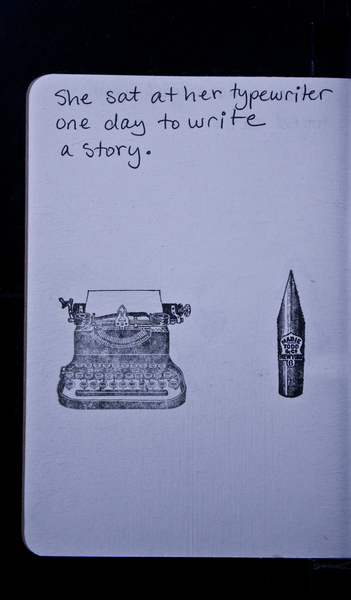 She sat at her typewriter
one day to write
a story.
MABIE
TODD
& CO
NEW YORK